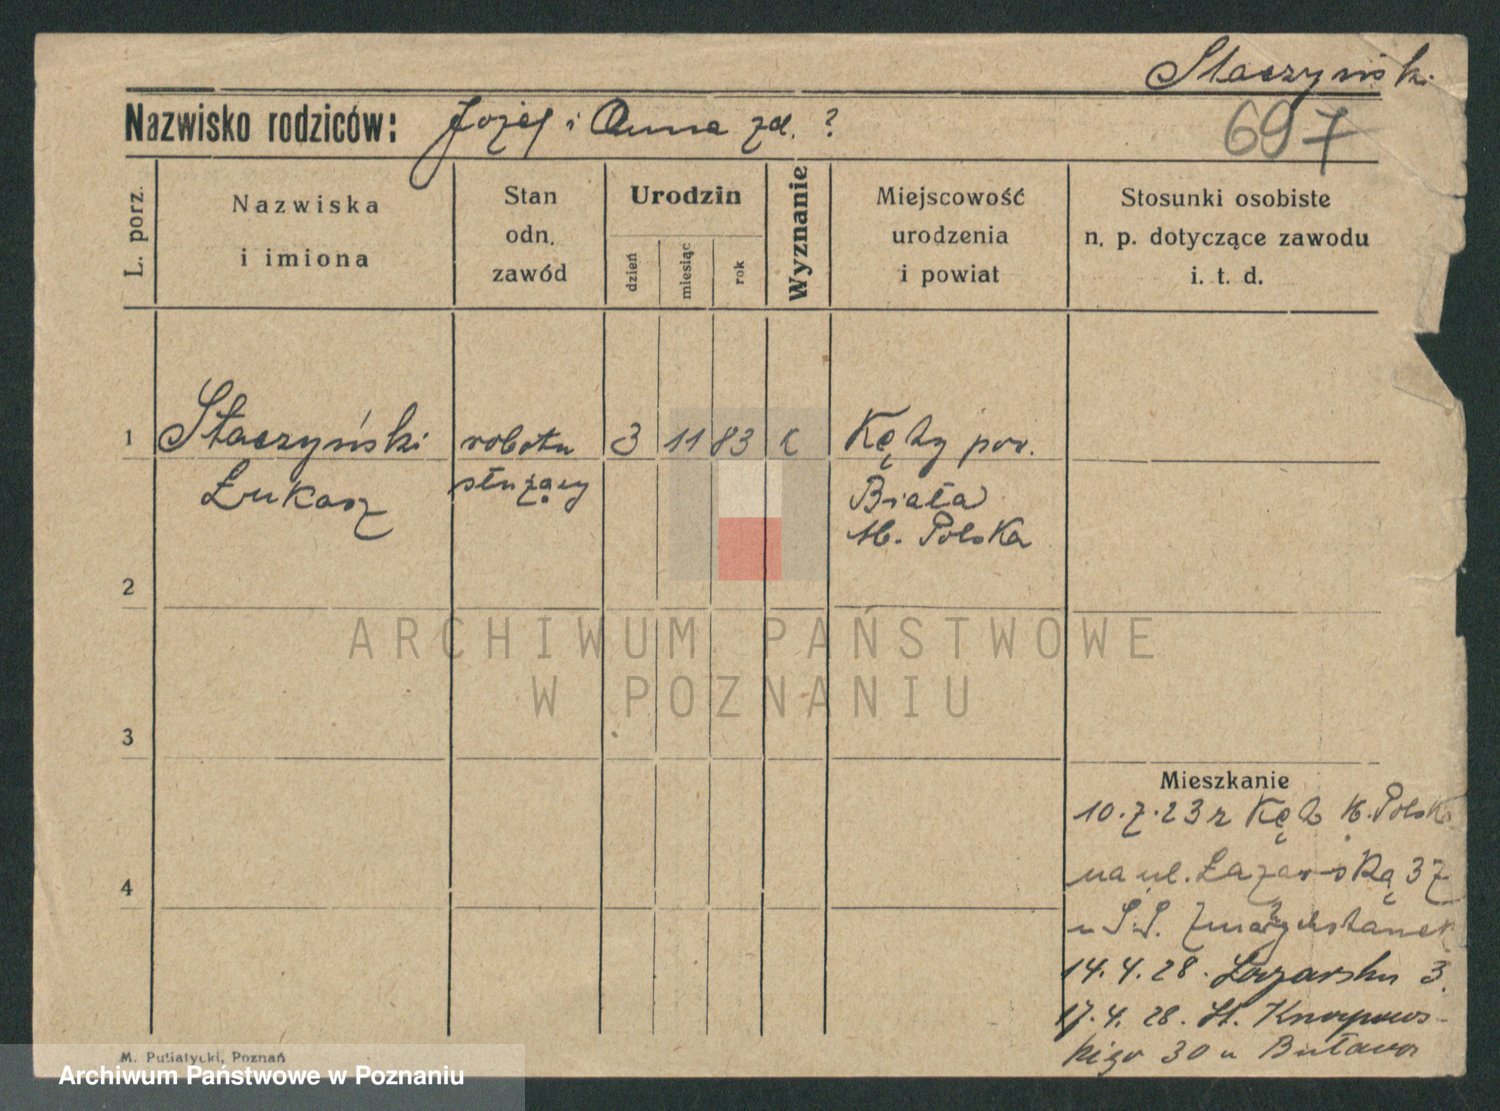 Staszyński
Nazwisko rodziców: Józef i Anna zd. ?
697
L. porz.
Nazwiska
i imiona
Stan
odn.
zawód
Urodzin
dzień
miesiąc
rok
Wyznanie
Miejscowość
urodzenia
i powiat
Stosunki osobiste
n. p. dotyczące zawodu
i. t. d.
1 Staszyński robotn 3 11 83 k Kęty pow.
Łukasz służący Biała
M. Polska
2
ARCHIWUM PAŃSTWOWE
W POZNANIU
3
Mieszkanie
10.7.23 z Kęt M. Polska
4
na ul. Łazarską 37
u S.S.
14.4.28. Łazarska 3.
17.4.28. St. Knapows-
kiego 30 u
M. Putiatycki, Poznań
Archiwum Państwowe w Poznaniu